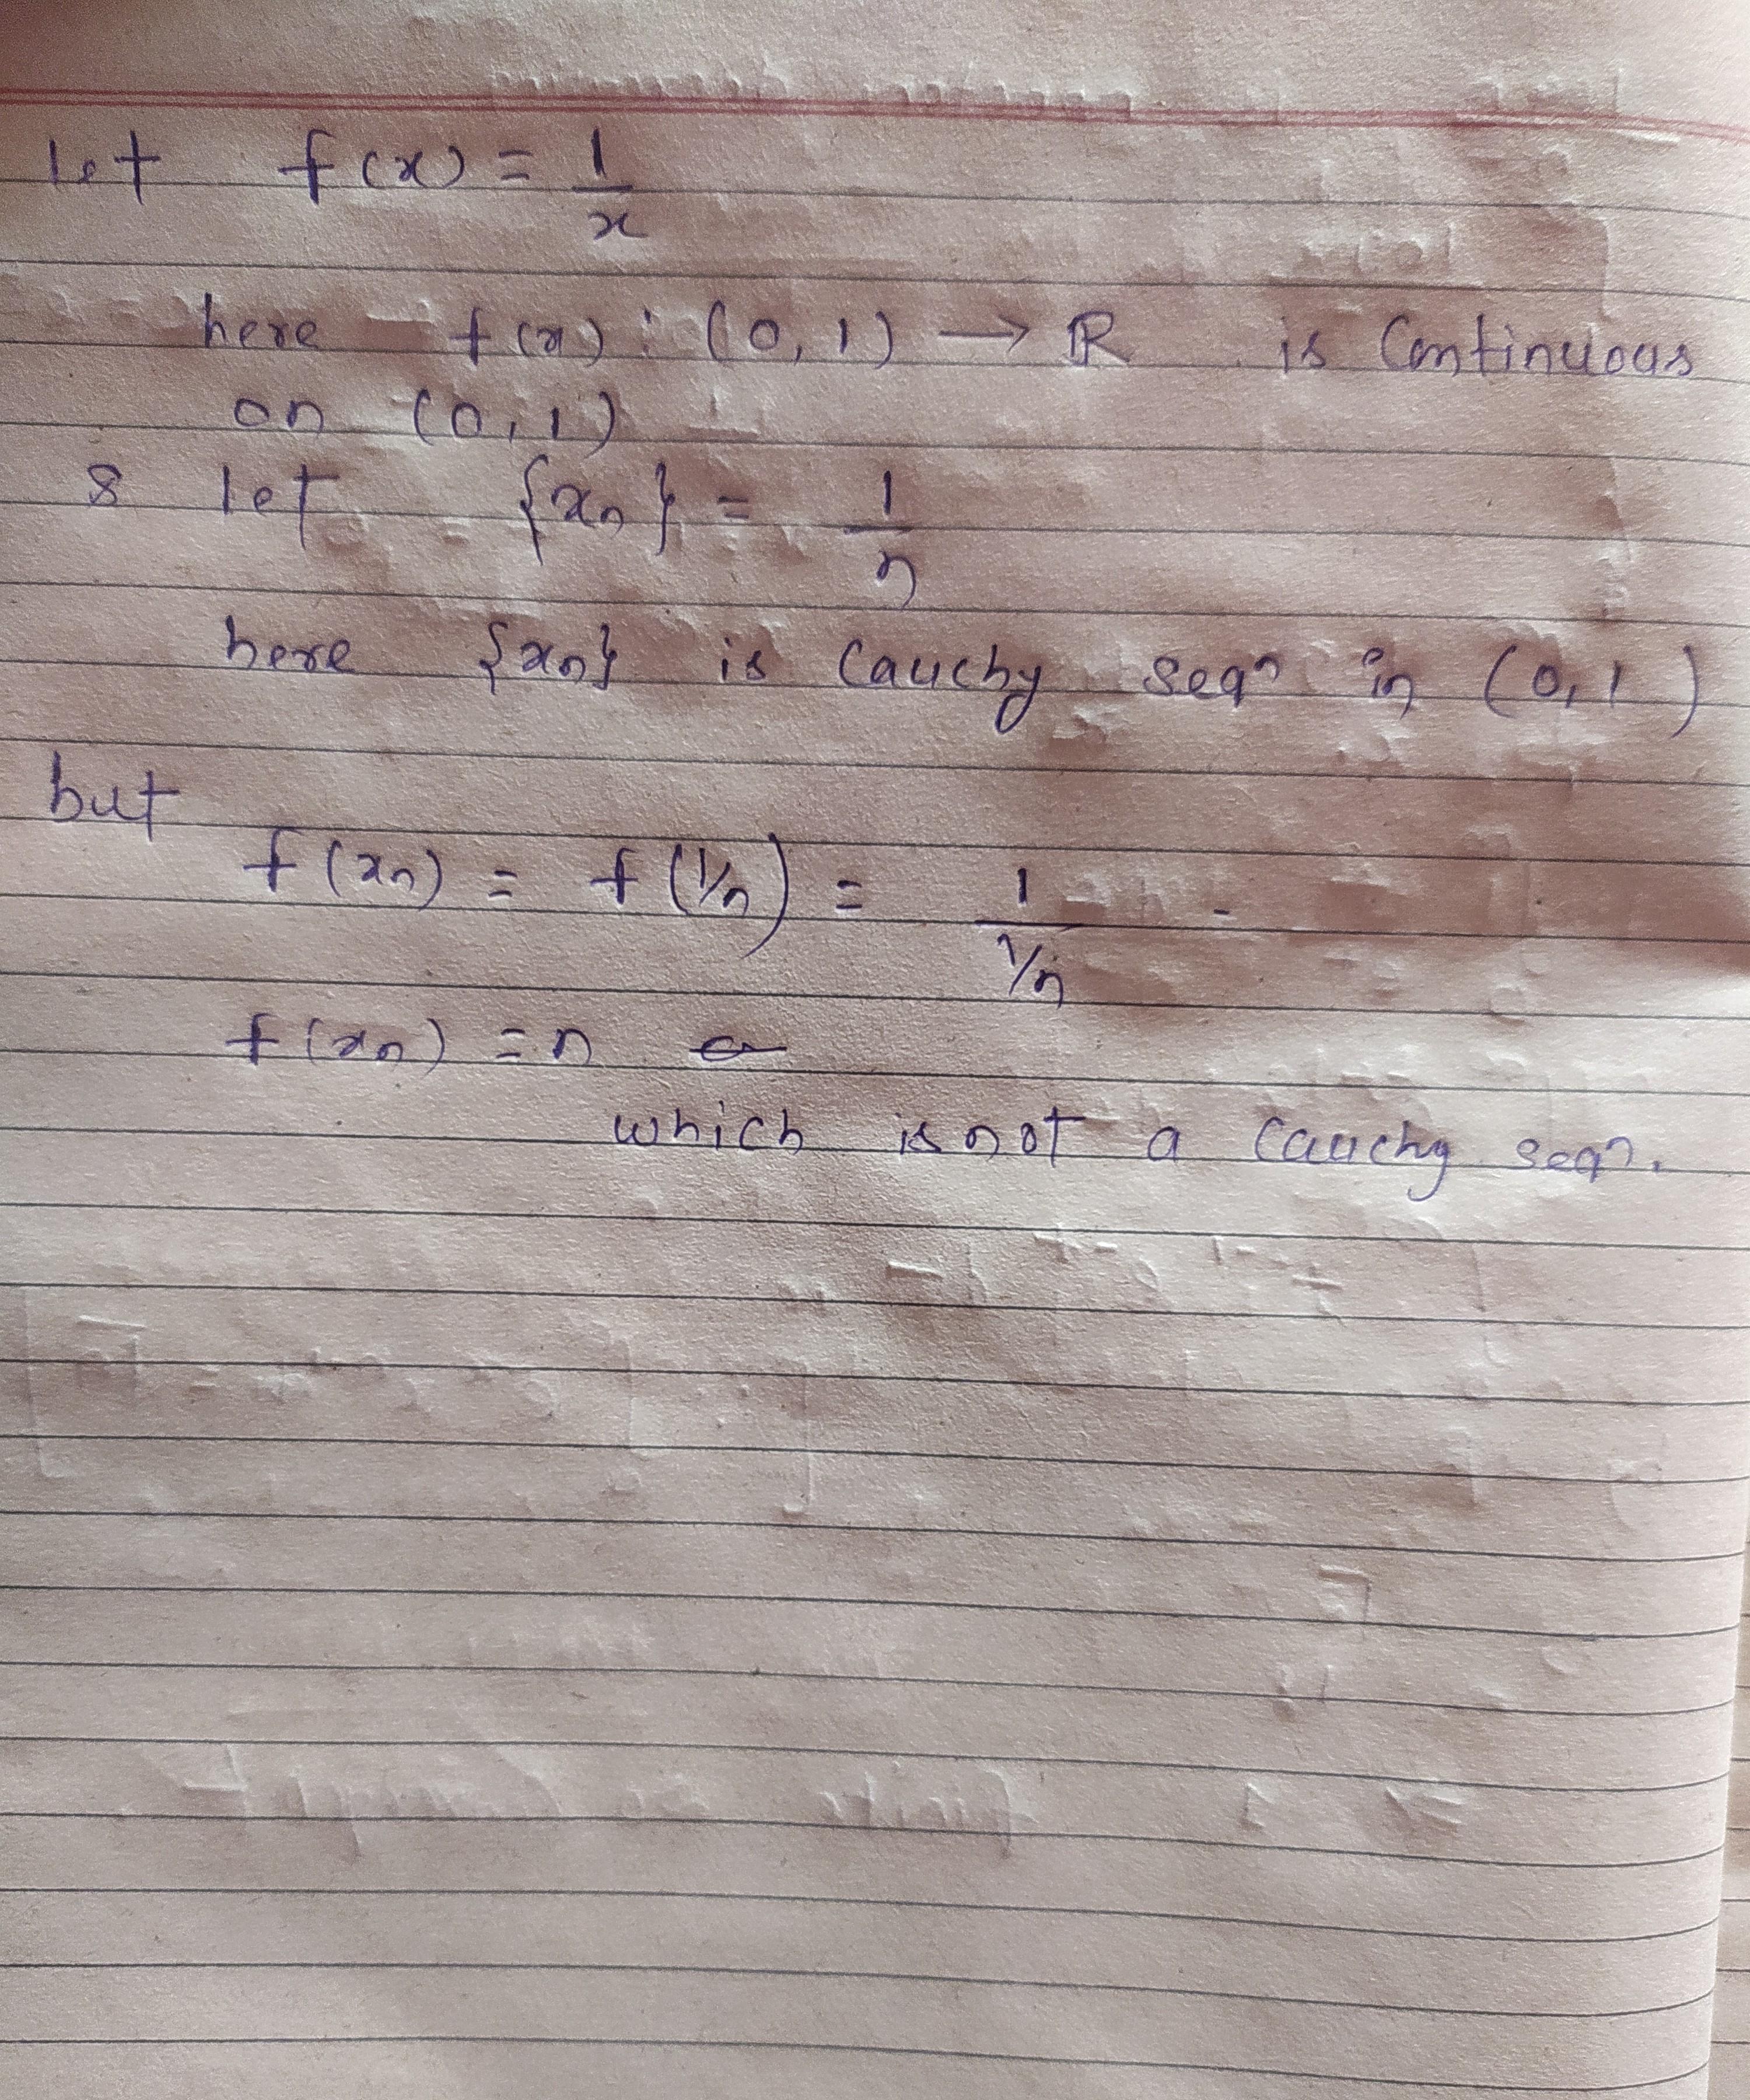 let f(x) = 1/x
here f(x) : (0, 1) → ℝ is Continuous
on (0, 1)
& let {xn} = 1/n
here {xn} is Cauchy seqn in (0, 1)
but
f(xn) = f(1/n) = 1/(1/n)
f(xn) = n
which is not a Cauchy seqn.